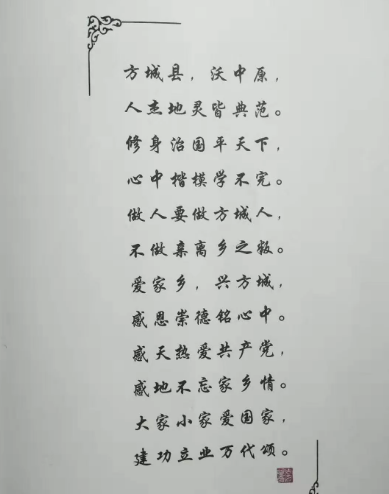 方城县，沃中原，
人杰地灵皆典范。
修身治国平天下，
心中楷模学不完。
做人要做方城人，
不做弃离乡之叛。
爱家乡，兴方城，
感恩崇德铭心中。
感天热爱共产党，
感地不忘家乡情。
大家小家爱国家，
建功立业万代颂。